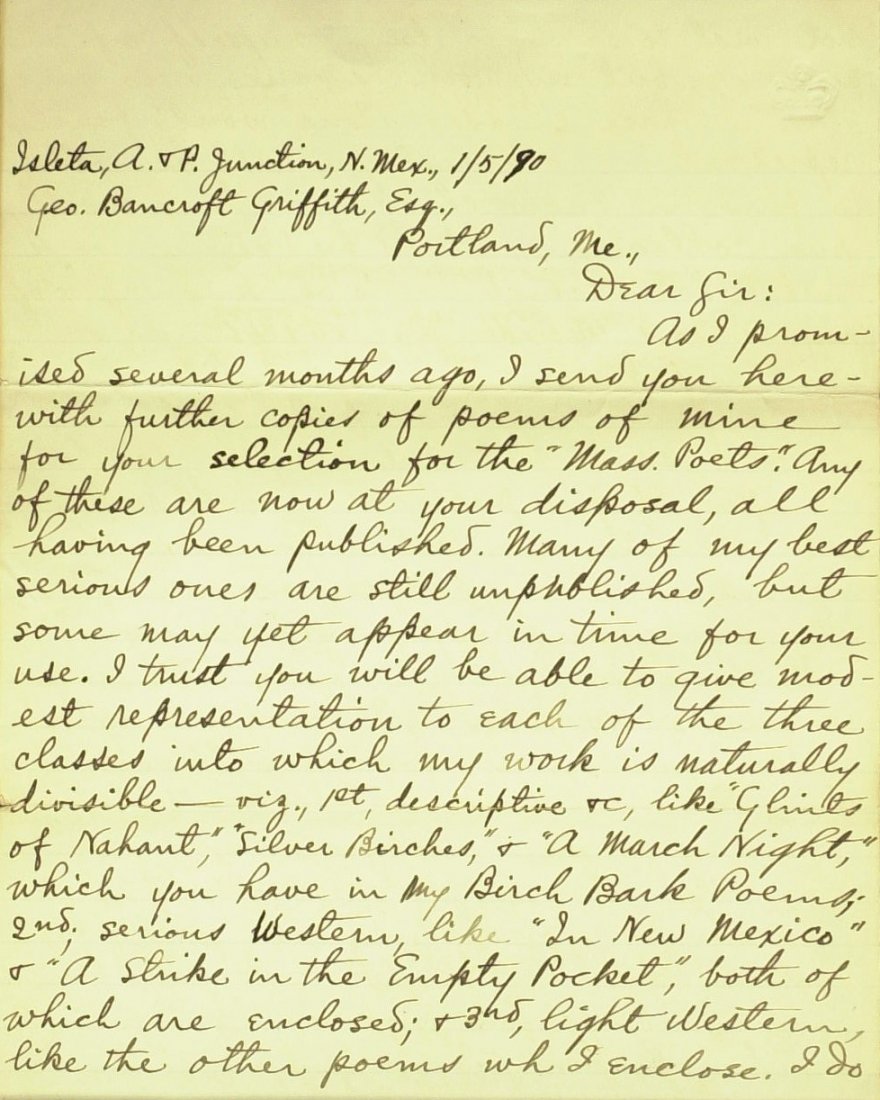 Isleta, A. & P. Junction, N. Mex., 1/5/90
Geo. Bancroft Griffith, Esq.,
Portland, Me.,
Dear Sir:
As I prom-
ised several months ago, I send you here-
with further copies of poems of mine
for your selection for the "Mass. Poets". Any
of these are now at your disposal, all
having been published. Many of my best
serious ones are still unpublished, but
some may yet appear in time for your
use. I trust you will be able to give mod-
est representation to each of the three
classes into which my work is naturally
divisible — viz., 1st, descriptive &c, like "Glints
of Nahant," "Silver Birches," & "A March Night,"
which you have in my Birch Bark Poems;
2nd; serious Western, like "In New Mexico"
& "A Strike in the Empty Pocket", both of
which are enclosed; & 3rd, light Western,
like the other poems wh I enclose. I do